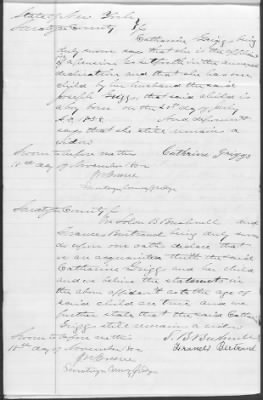 State of New York
Saratoga County } ss
Catharine Grigg being
duly sworn says that she is the
of a pension as set forth in the annexed
declaration and that she has one
child by her husband the said
Joseph Grigg, that said child is
a boy born on the 20th day of July
A.D. 1858. And deponent
says that she still remains a
widow
Sworn before me this Cathrine Griggs
18th day of November 1862
Saratoga County Judge
Saratoga County ss
We Solon B Bushnell and
Frances Bertrand being duly sworn
do upon our oaths declare that
we are acquainted with the said
Catharine Grigg and her child
and we believe the statements in
the above affidavit as to the age of
said child are true and we
further state that the said Catharine
Grigg still remains a widow
Sworn to before me this S. B. Bushnell
18th day of November 1862 Frances Bertrand
Saratoga County Judge